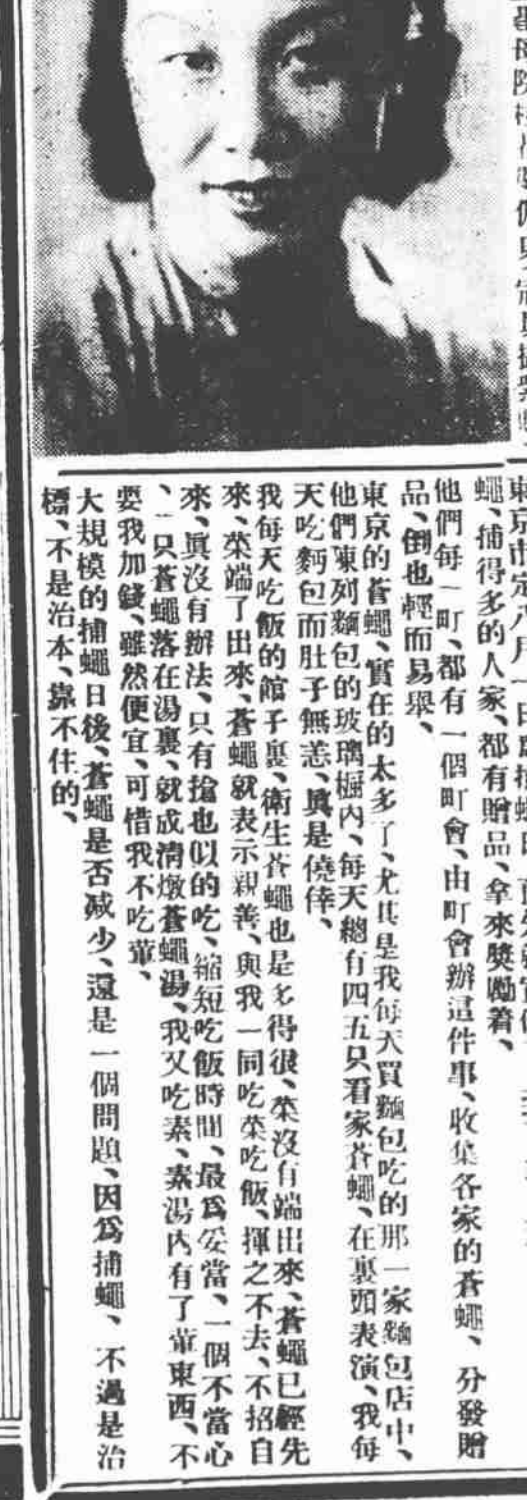 東京市定八月一日爲捕蠅日
蠅、捕得多的人家、都有贈品、拿來獎勵着、
他們每一町、都有一個町會、由町會辦這件事、收集各家的蒼蠅、分發贈
品、倒也輕而易舉、
東京的蒼蠅、實在的太多了、尤其是我每天買麵包吃的那一家麵包店中、
他們陳列麵包的玻璃櫉內、每天總有四五只看家蒼蠅、在裏頭表演、我每
天吃麪包而肚子無恙、眞是僥倖、
我每天吃飯的館子裏、衛生蒼蠅也是多得很、菜沒有端出來、蒼蠅已經先
來、菜端了出來、蒼蠅就表示親善、與我一同吃菜吃飯、揮之不去、不招自
來、眞沒有辦法、只有搶也似的吃、縮短吃飯時間、最爲妥當、一個不當心
、一只蒼蠅落在湯裏、就成清燉蒼蠅湯、我又吃素、素湯內有了葷東西、不
要我加錢、雖然便宜、可惜我不吃葷、
大規模的捕蠅日後、蒼蠅是否減少、還是一個問題、因爲捕蠅、不過是治
標、不是治本、靠不住的、